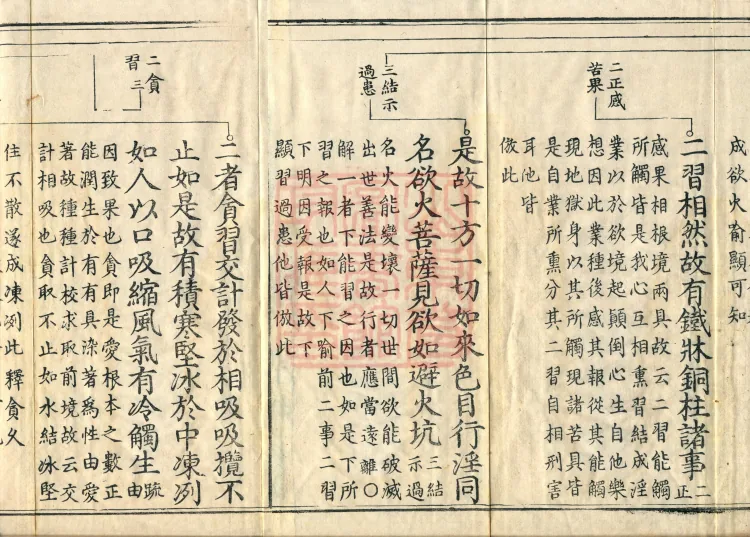 成欲火喻顯可知
二正感
苦果
二習相然故有鐵牀銅柱諸事二正
感果相根境兩具故云二習能觸
所觸皆是我心互相熏習結成淫
業以於欲境起顛倒心生自他樂
想因此業種後感其報從其能觸
現地獄身以其所觸現諸苦具皆
是自業所熏分其二習自相刑害
耳他皆
倣此
三結示
過患
是故十方一切如來色目行淫同
名欲火菩薩見欲如避火坑三結示過
名火能變壞一切世間欲能破滅
出世善法是故行者應當遠離〇
解一者下能習之因也如是下所
習之報也如人下喻前二事二習
下明因受報是故下
顯習過患他皆倣此
二貪
習三
二者貪習交計發於相吸吸攬不
止如是故有積寒堅冰於中凍冽
如人以口吸縮風氣有冷觸生疏由
因致果也貪即是愛根本之數正
能潤生於有有具染著為性由愛
著故種種計校求取前境故云交
計相吸也貪取不止如水結冰堅
住不散遂成凍冽此釋貪久